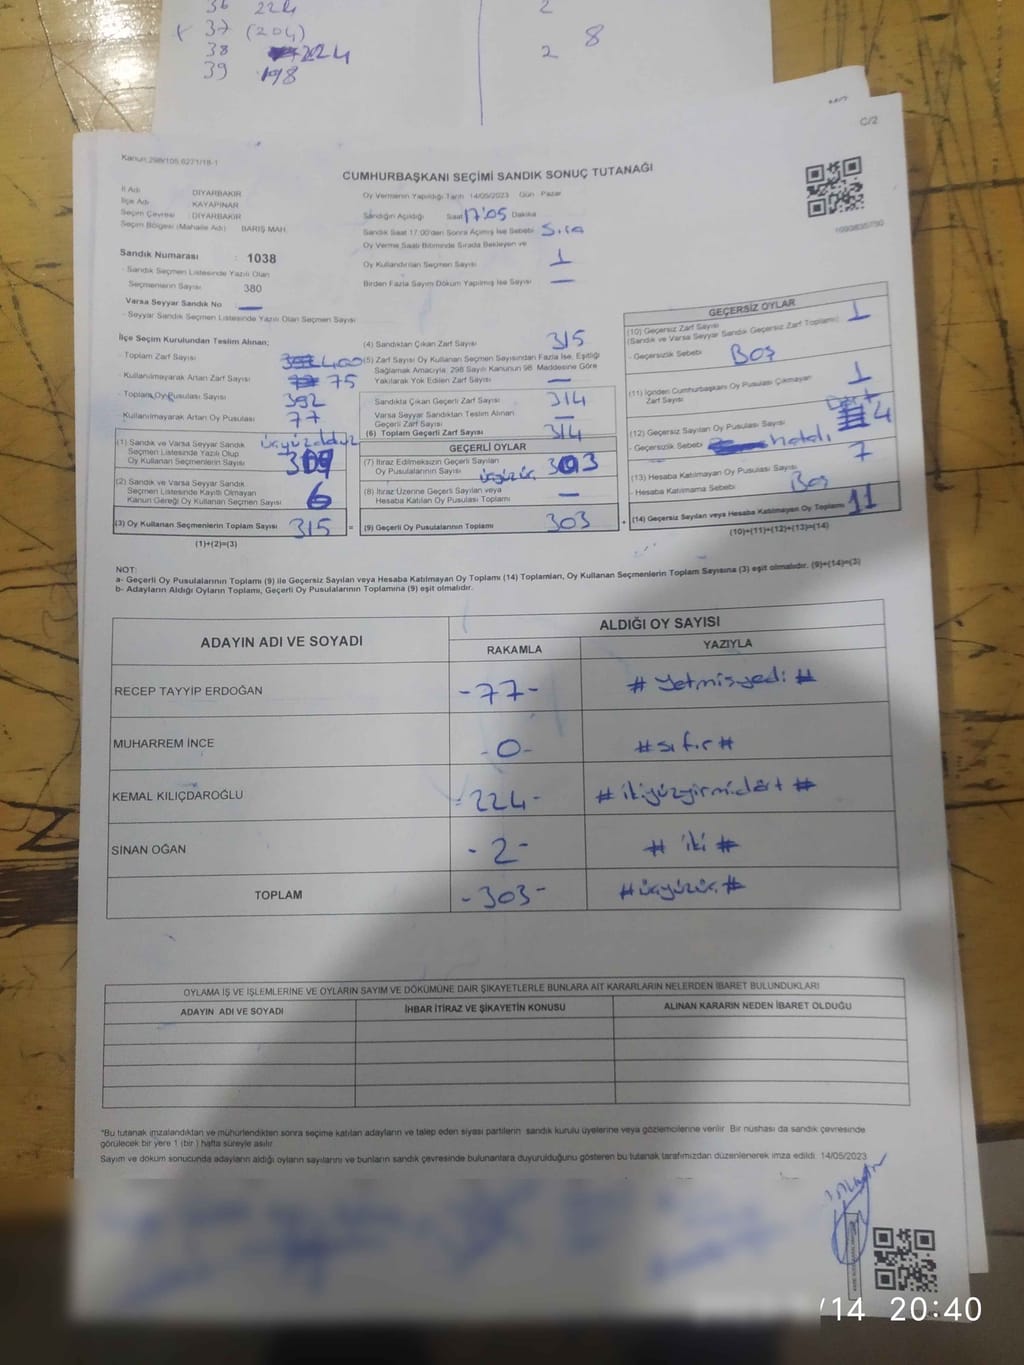 36 224 2
37 (204)
38 224 2 8
39 198
C/2
Kanun:298/105,6271/18-1
CUMHURBAŞKANI SEÇİMİ SANDIK SONUÇ TUTANAĞI
İl Adı DİYARBAKIR
İlçe Adı KAYAPINAR
Seçim Çevresi : DİYARBAKIR
Seçim Bölgesi (Mahalle Adı) BARIŞ MAH.
Oy Vermenin Yapıldığı Tarih 14/05/2023 Gün Pazar
Sandığın Açıldığı Saat 17:05 Dakika
Sandık Saat 17.00'den Sonra Açılmış İse Sebebi Sıra
Oy Verme Saati Bitiminde Sırada Bekleyen ve
Oy Kullandırılan Seçmen Sayısı 1
Birden Fazla Sayım Döküm Yapılmış İse Sayısı —
Sandık Numarası : 1038
- Sandık Seçmen Listesinde Yazılı Olan
Seçmenlerin Sayısı 380
Varsa Seyyar Sandık No —
- Seyyar Sandık Seçmen Listesinde Yazılı Olan Seçmen Sayısı
İlçe Seçim Kurulundan Teslim Alınan;
- Toplam Zarf Sayısı 400
- Kullanılmayarak Artan Zarf Sayısı 75
- Toplam Oy Pusulası Sayısı 392
- Kullanılmayarak Artan Oy Pusulası 77
(1) Sandık ve Varsa Seyyar Sandık
Seçmen Listesinde Yazılı Olup
Oy Kullanan Seçmenlerin Sayısı üçyüzdokuz 309
(2) Sandık ve Varsa Seyyar Sandık
Seçmen Listesinde Kayıtlı Olmayan
Kanun Gereği Oy Kullanan Seçmen Sayısı 6
(3) Oy Kullanan Seçmenlerin Toplam Sayısı 315 =
(1)+(2)=(3)
(4) Sandıktan Çıkan Zarf Sayısı 315
(5) Zarf Sayısı Oy Kullanan Seçmen Sayısından Fazla İse, Eşitliği
Sağlamak Amacıyla, 298 Sayılı Kanunun 98. Maddesine Göre
Yakılarak Yok Edilen Zarf Sayısı —
Sandıkta Çıkan Geçerli Zarf Sayısı 314
Varsa Seyyar Sandıktan Teslim Alınan
Geçerli Zarf Sayısı —
(6) Toplam Geçerli Zarf Sayısı 314
GEÇERLİ OYLAR
(7) İtiraz Edilmeksizin Geçerli Sayılan
Oy Pusulalarının Sayısı üçyüzüç 303
(8) İtiraz Üzerine Geçerli Sayılan veya
Hesaba Katılan Oy Pusulası Toplamı —
(9) Geçerli Oy Pusulalarının Toplamı 303 +
GEÇERSİZ OYLAR
(10) Geçersiz Zarf Sayısı 1
(Sandık ve Varsa Seyyar Sandık Geçersiz Zarf Toplamı)
- Geçersizlik Sebebi Boş
(11) İçinden Cumhurbaşkanı Oy Pusulası Çıkmayan
Zarf Sayısı 1
(12) Geçersiz Sayılan Oy Pusulası Sayısı Dört 4
- Geçersizlik Sebebi hatalı
(13) Hesaba Katılmayan Oy Pusulası Sayısı 7
- Hesaba Katılmama Sebebi Boş
(14) Geçersiz Sayılan veya Hesaba Katılmayan Oy Toplamı 11
(10)+(11)+(12)+(13)=(14)
NOT:
a- Geçerli Oy Pusulalarının Toplamı (9) ile Geçersiz Sayılan veya Hesaba Katılmayan Oy Toplamı (14) Toplamları, Oy Kullanan Seçmenlerin Toplam Sayısına (3) eşit olmalıdır. (9)+(14)=(3)
b- Adayların Aldığı Oyların Toplamı, Geçerli Oy Pusulalarının Toplamına (9) eşit olmalıdır.
ADAYIN ADI VE SOYADI ALDIĞI OY SAYISI
RAKAMLA YAZIYLA
RECEP TAYYİP ERDOĞAN -77- # Yetmişyedi #
MUHARREM İNCE -0- # sıfır #
KEMAL KILIÇDAROĞLU -224- # ikiyüzyirmidört #
SİNAN OĞAN -2- # iki #
TOPLAM -303- # üçyüzüç #
OYLAMA İŞ VE İŞLEMLERİNE VE OYLARIN SAYIM VE DÖKÜMÜNE DAİR ŞİKAYETLERLE BUNLARA AİT KARARLARIN NELERDEN İBARET BULUNDUKLARI
ADAYIN ADI VE SOYADI İHBAR İTİRAZ VE ŞİKAYETİN KONUSU ALINAN KARARIN NEDEN İBARET OLDUĞU
*Bu tutanak imzalandıktan ve mühürlendikten sonra seçime katılan adayların ve talep eden siyasi partilerin sandık kurulu üyelerine veya gözlemcilerine verilir. Bir nüshası da sandık çevresinde
görülecek bir yere 1 (bir) hafta süreyle asılır.
Sayım ve döküm sonucunda adayların aldığı oyların sayılarını ve bunların sandık çevresinde bulunanlara duyurulduğunu gösteren bu tutanak tarafımızdan düzenlenerek imza edildi. 14/05/2023
/14 20:40